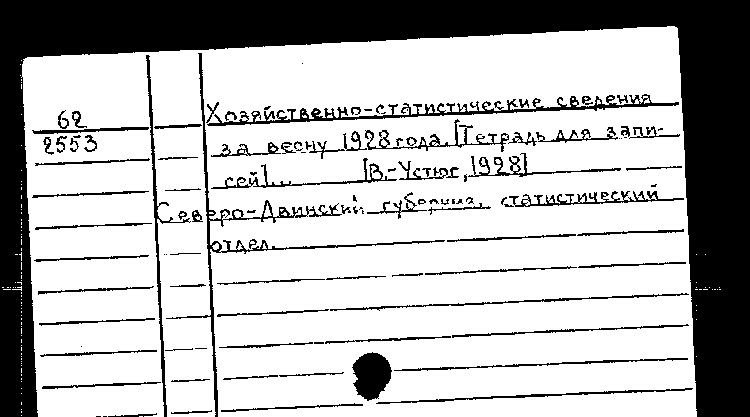 62
2553
Хозяйственно-статистические сведения
за весну 1928 года. [Тетрадь для запи-
сей]... [В.-Устюг, 1928]
Северо-Двинский губерния. статистический
отдел.